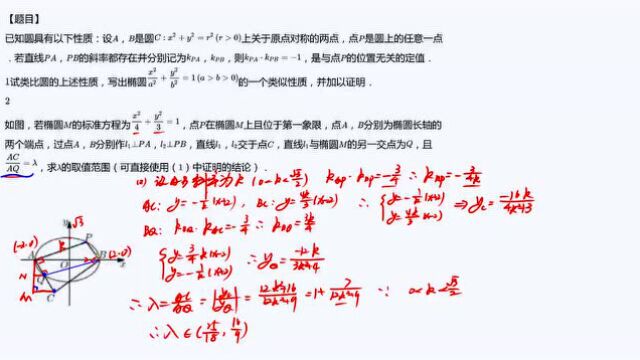 【题目】
已知圆具有以下性质：设A，B是圆C：x²+y²=r²(r>0)上关于原点对称的两点，点P是圆上的任意一点
．若直线PA，PB的斜率都存在并分别记为k_PA，k_PB，则k_PA·k_PB=-1，是与点P的位置无关的定值．
1试类比圆的上述性质，写出椭圆x²/a²+y²/b²=1(a>b>0)的一个类似性质，并加以证明．
2
如图，若椭圆M的标准方程为x²/4+y²/3=1，点P在椭圆M上且位于第一象限，点A，B分别为椭圆长轴的
两个端点，过点A，B分别作l₁⊥PA，l₂⊥PB，直线l₁，l₂交于点C，直线l₁与椭圆M的另一交点为Q，且
AC/AQ=λ，求λ的取值范围（可直接使用（1）中证明的结论）．
k_AP·k_BP=-3/4 ∴k_BP=-3/4k
AC: y=-1/k(x+2), BC: y=4k/3(x-2)
∴{y=-1/k(x+2) y=4k/3(x-2)
BQ: k_QA·k_BQ=-3/4 ∴k_BQ=3k/4
{y=3/4k(x-2) y=-1/k(x+2)
∴y_Q=-12k/3k²+4
∴λ=
=1+7/12k²+9
∴λ∈(
√3
(-2,0)
(2,0)
y
x
A
B
P
O
Q
C
N
M
k